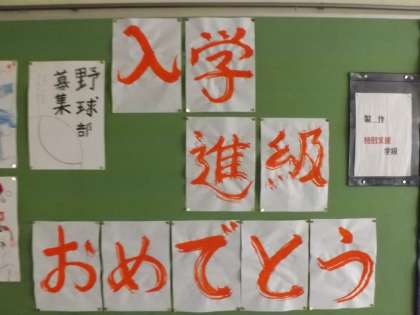 入学
進級
おめでとう
野球部
募集
製作
特別支援
学級